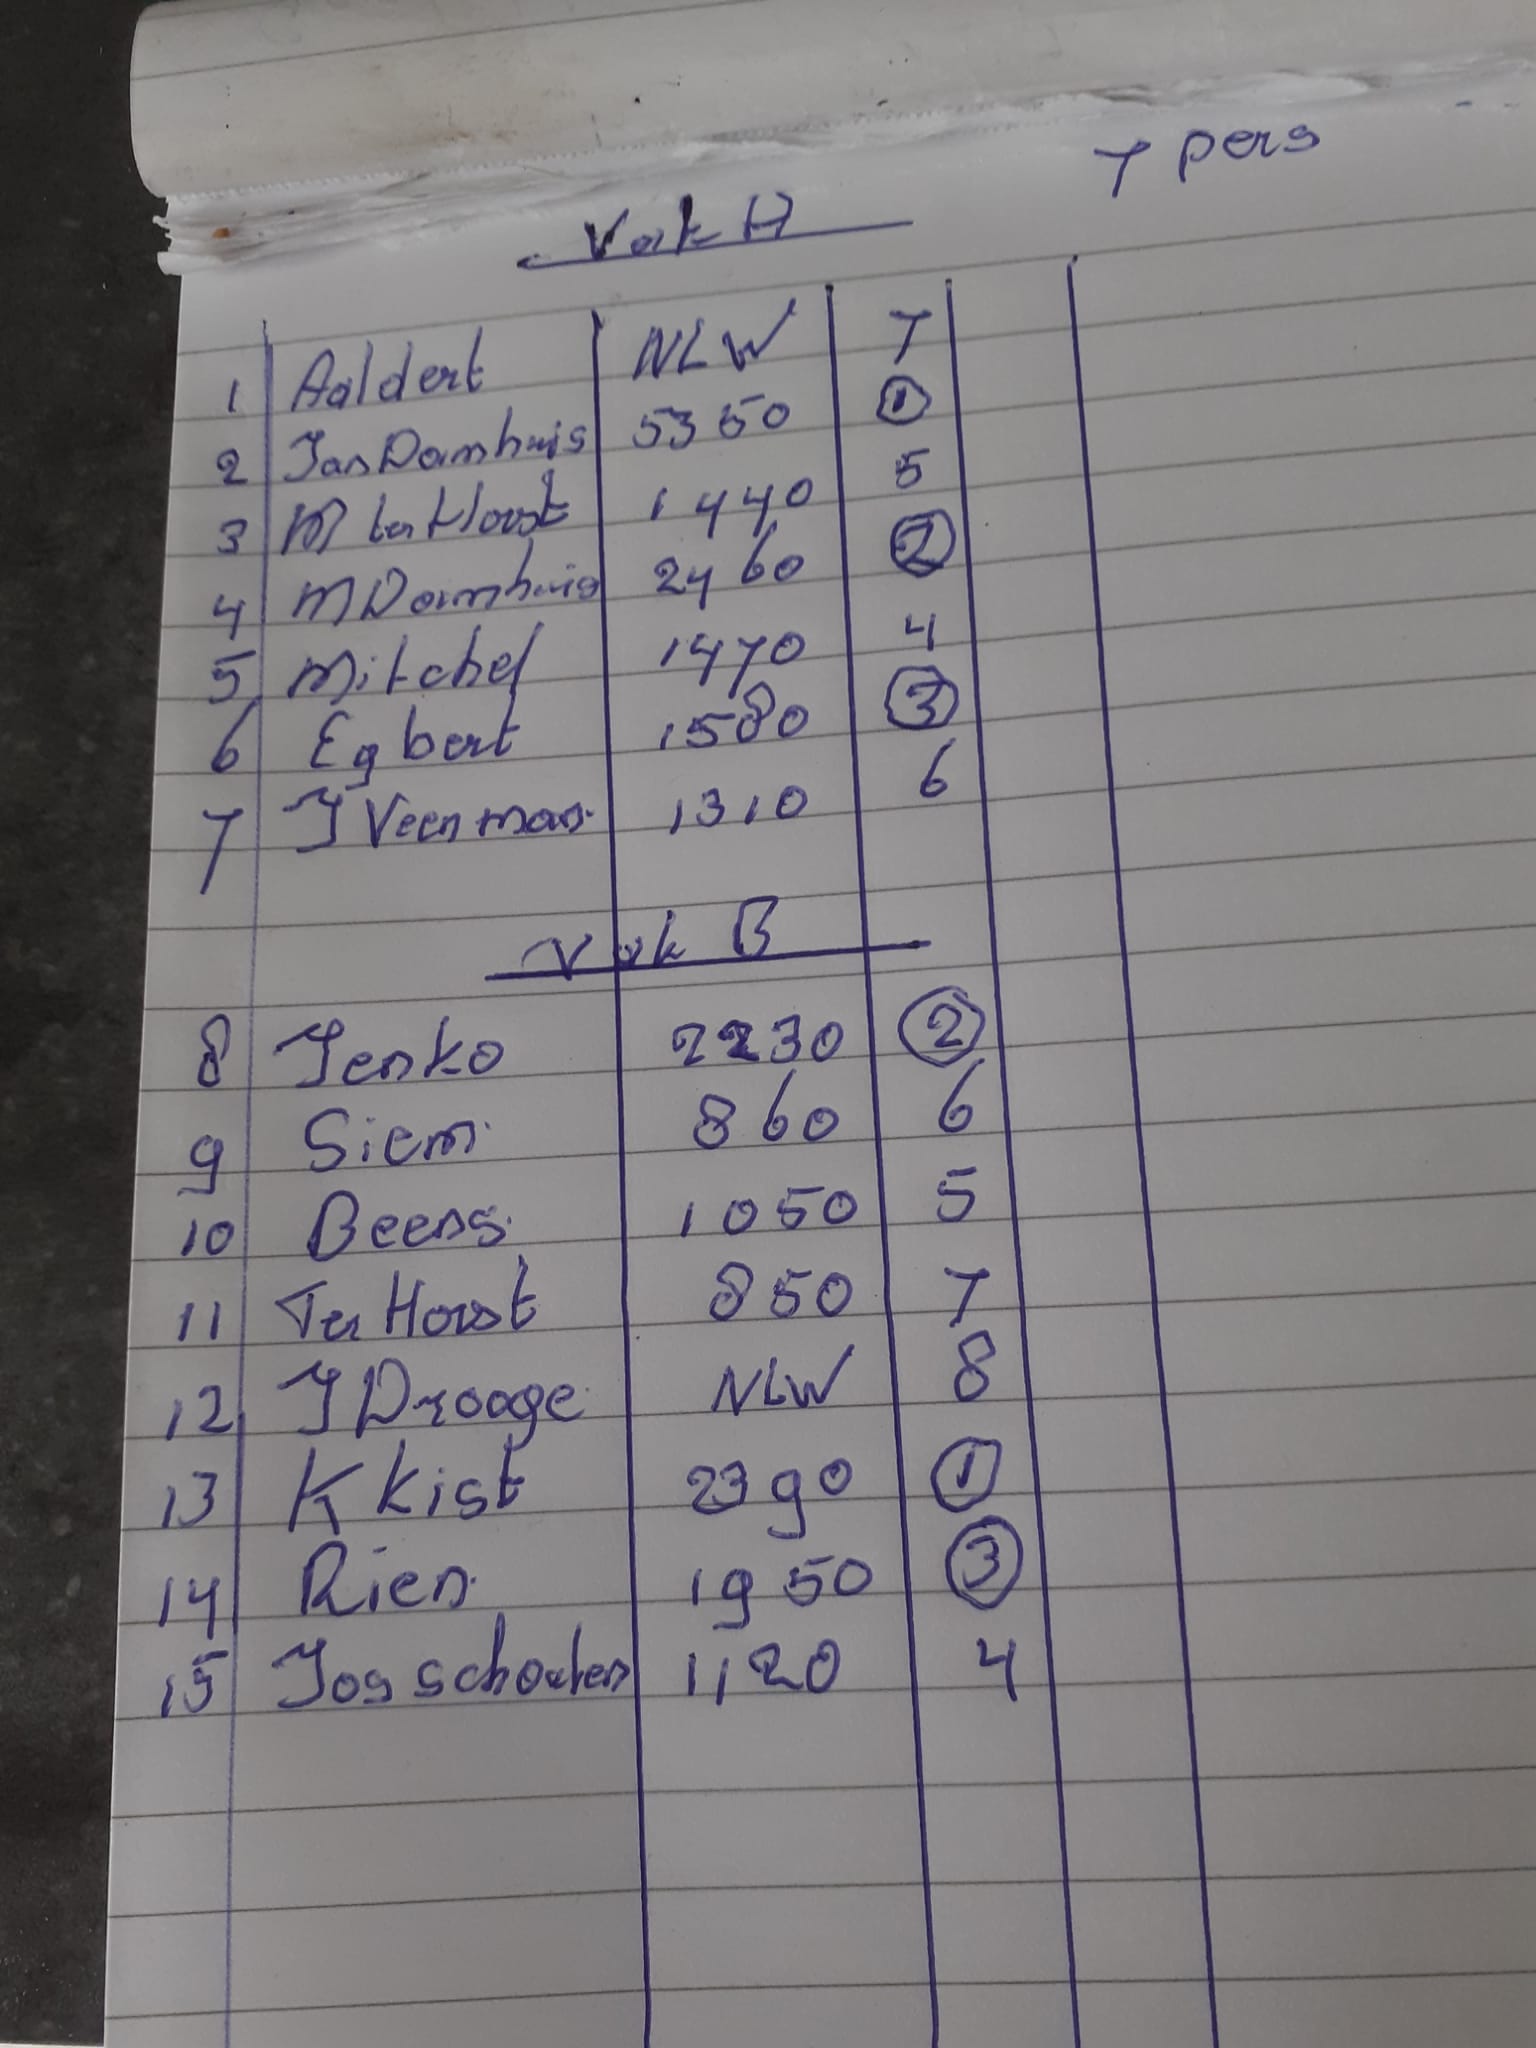 7 pers
Vak A
1 Aaldert NLW 7
2 Jan Damhuis 5350 1
3 M ter Horst 1440 5
4 M Damhuis 2460 2
5 Mitchel 1470 4
6 Egbert 1580 3
7 J Veenman 1310 6
Vak B
8 Jenko 2230 2
9 Siem 860 6
10 Beens 1050 5
11 Ter Horst 850 7
12 J Drooge NLW 8
13 K Kist 2390 1
14 Rien 1950 3
15 Jos schouten 1120 4